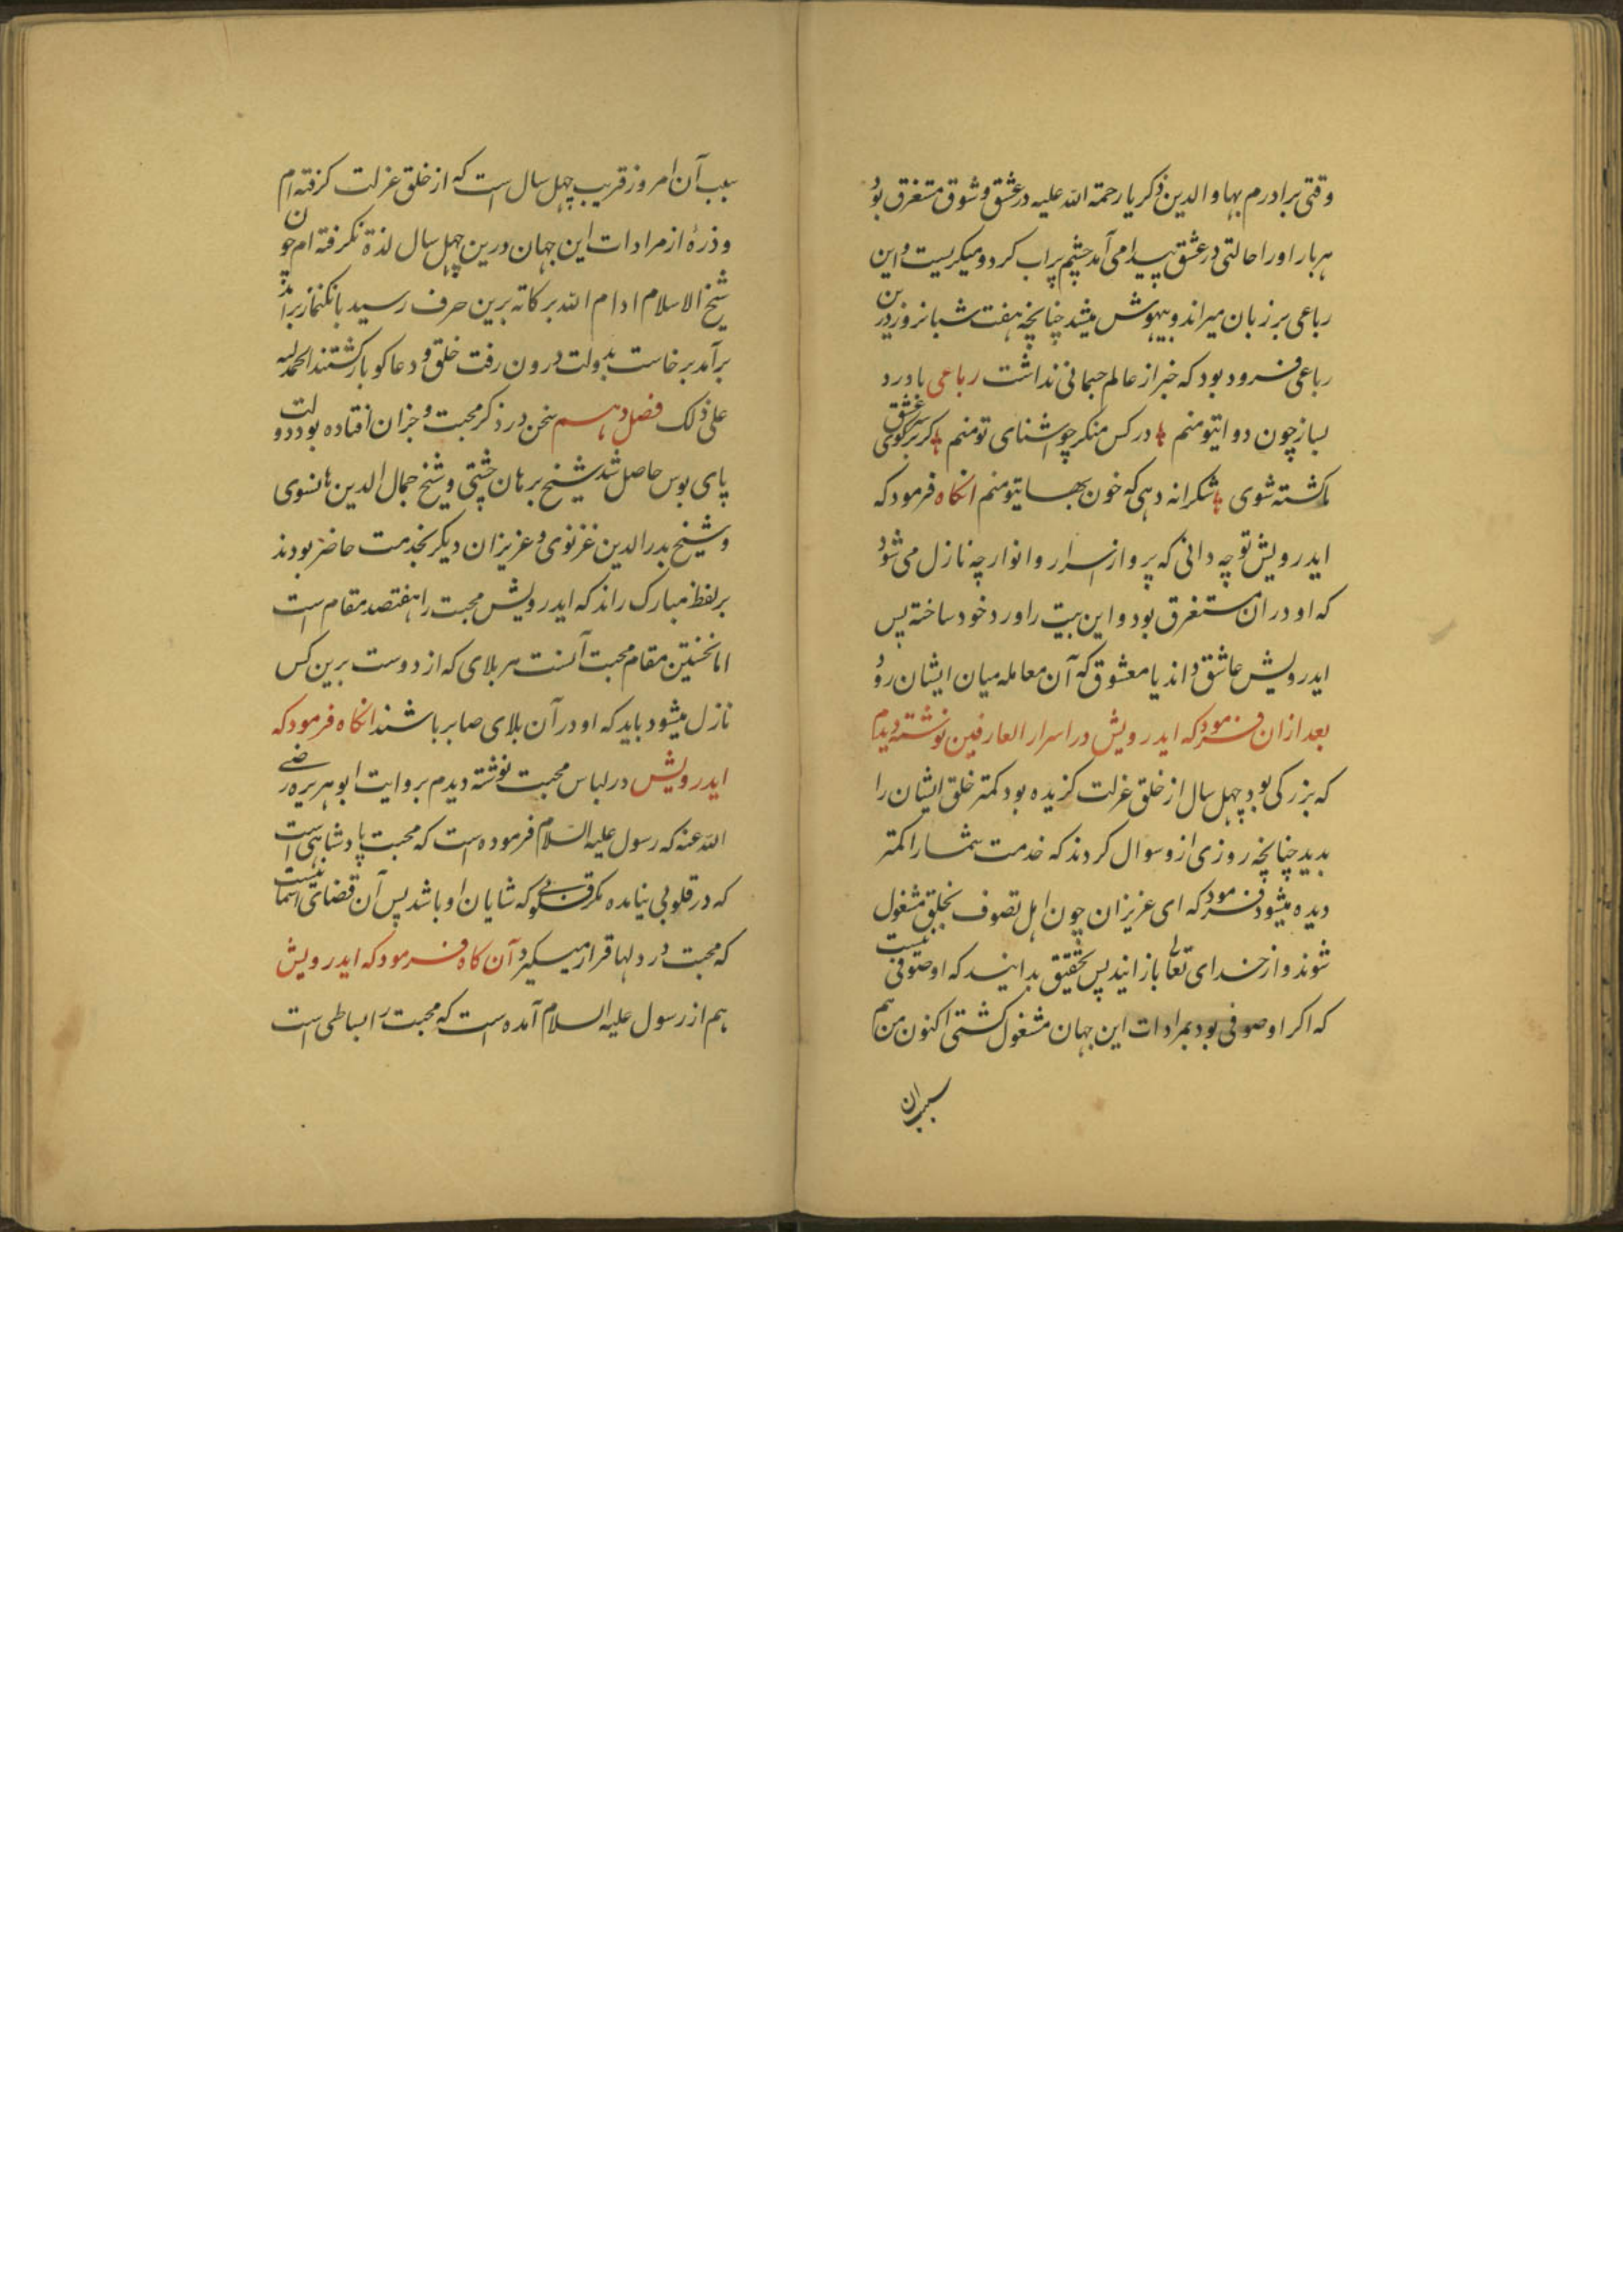 وقتی برادرم بهاو الدین ذکریا رحمة الله علیه در عشق و شوق مستغرق بود
هربار اورا حالتی در عشق پیدا می آمد چشم پراب کرد و میکریست و این
رباعی بر زبان میراند و بیهوش میشد چنانچه هفت شبانروز درین
رباعی فرود بود که خبر از عالم جسمانی نداشت رباعی با درد
بساز چون دوا یتو منم در کس منکر چو اشنای تو منم کر بر سر کوی عشق
ما کشته شوی شکرانه دهی که خون بها یتو منم انکاه فرمود که
ایدرویش تو چه دانی که برو از اسرار و انوار چه نازل می شود
که او در ان مستغرق بود و این بیت را ورد خود ساخته پس
ایدرویش عاشق داند یا معشوق که آن معامله میان ایشان رود
بعد ازان فرمود که ایدرویش در اسرار العارفین نوشته دیدم
که بزرکی بود چهل سال از خلق عزلت کزیده بود کمتر خلق ایشان را
بدید چنانچه روزی ازو سوال کردند که خدمت شما را کمتر
دیده میشود فرمود که ای عزیزان چون اهل تصوف بخلق مشغول
شوند و از خدای تعالی باز انید پس بتحقیق بدانید که او صوفی نیست
که اکر او صوفی بود بمرادات این جهان مشغول کشتی اکنون من هم
سبب ان
سبب آن امروز قریب چهل سال است که از خلق عزلت کرفته ام
و ذرهٔ از مرادات این جهان درین چهل سال لذة نکرفته ام چون
شیخ الاسلام ادام الله برکاته برین حرف رسید بانکنماز
برآمد برخاست بدولت درون رفت خلق و دعاکو بازکشتند الحمد لله
علی ذلک فصل دهم سخن در ذکر محبت و جزان افتاده بود دولت
پای بوس حاصل شد شیخ برهان چشتی و شیخ جمال الدین هانسوی
و شیخ بدر الدین غزنوی و عزیزان دیکر بخدمت حاضر بودند
بر لفظ مبارک راند که ایدرویش محبت را هفتصد مقام است
اما نخستین مقام محبت آنست هر بلای که از دوست برین کس
نازل میشود باید که او در آن بلای صابر باشند انکاه فرمود که
ایدرویش در لباس محبت نوشته دیدم بروایت ابو هریره رضی
الله عنه که رسول علیه السلام فرموده است که محبت پادشاهی است
که در قلوبی نیامده مکر قلوبی که شایان او باشد پس آن قضای آسمانیست
که محبت در دلها قرار میکیرد آن کاه فرمود که ایدرویش
هم از رسول علیه السلام آمده است که محبت را بساطی است